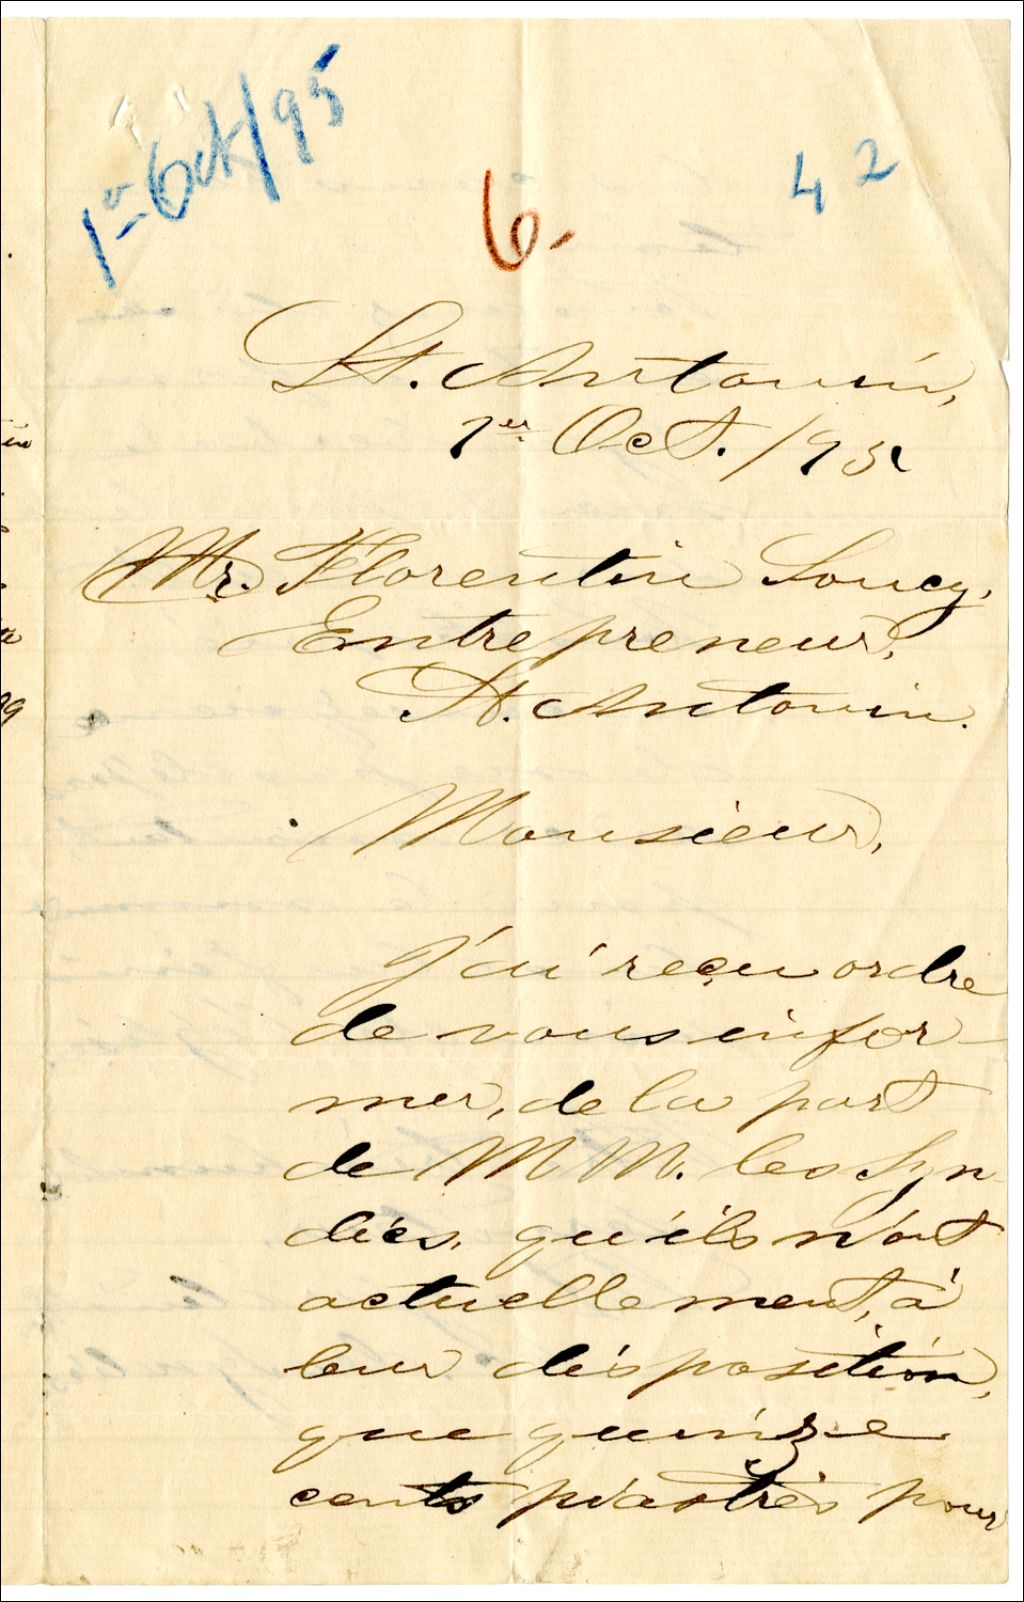 1er Oct/95
6.
42
St. Antonin,
1er Oct. /95.
Mr. Florentin Soucy,
Entrepreneur,
St. Antonin.
Monsieur,
J'ai reçu ordre
de vous infor-
mer, de la part
de MM. les Syn-
dics, qu'ils n'ont
actuellement, à
leur disposition,
que quinze
cents piastres pour